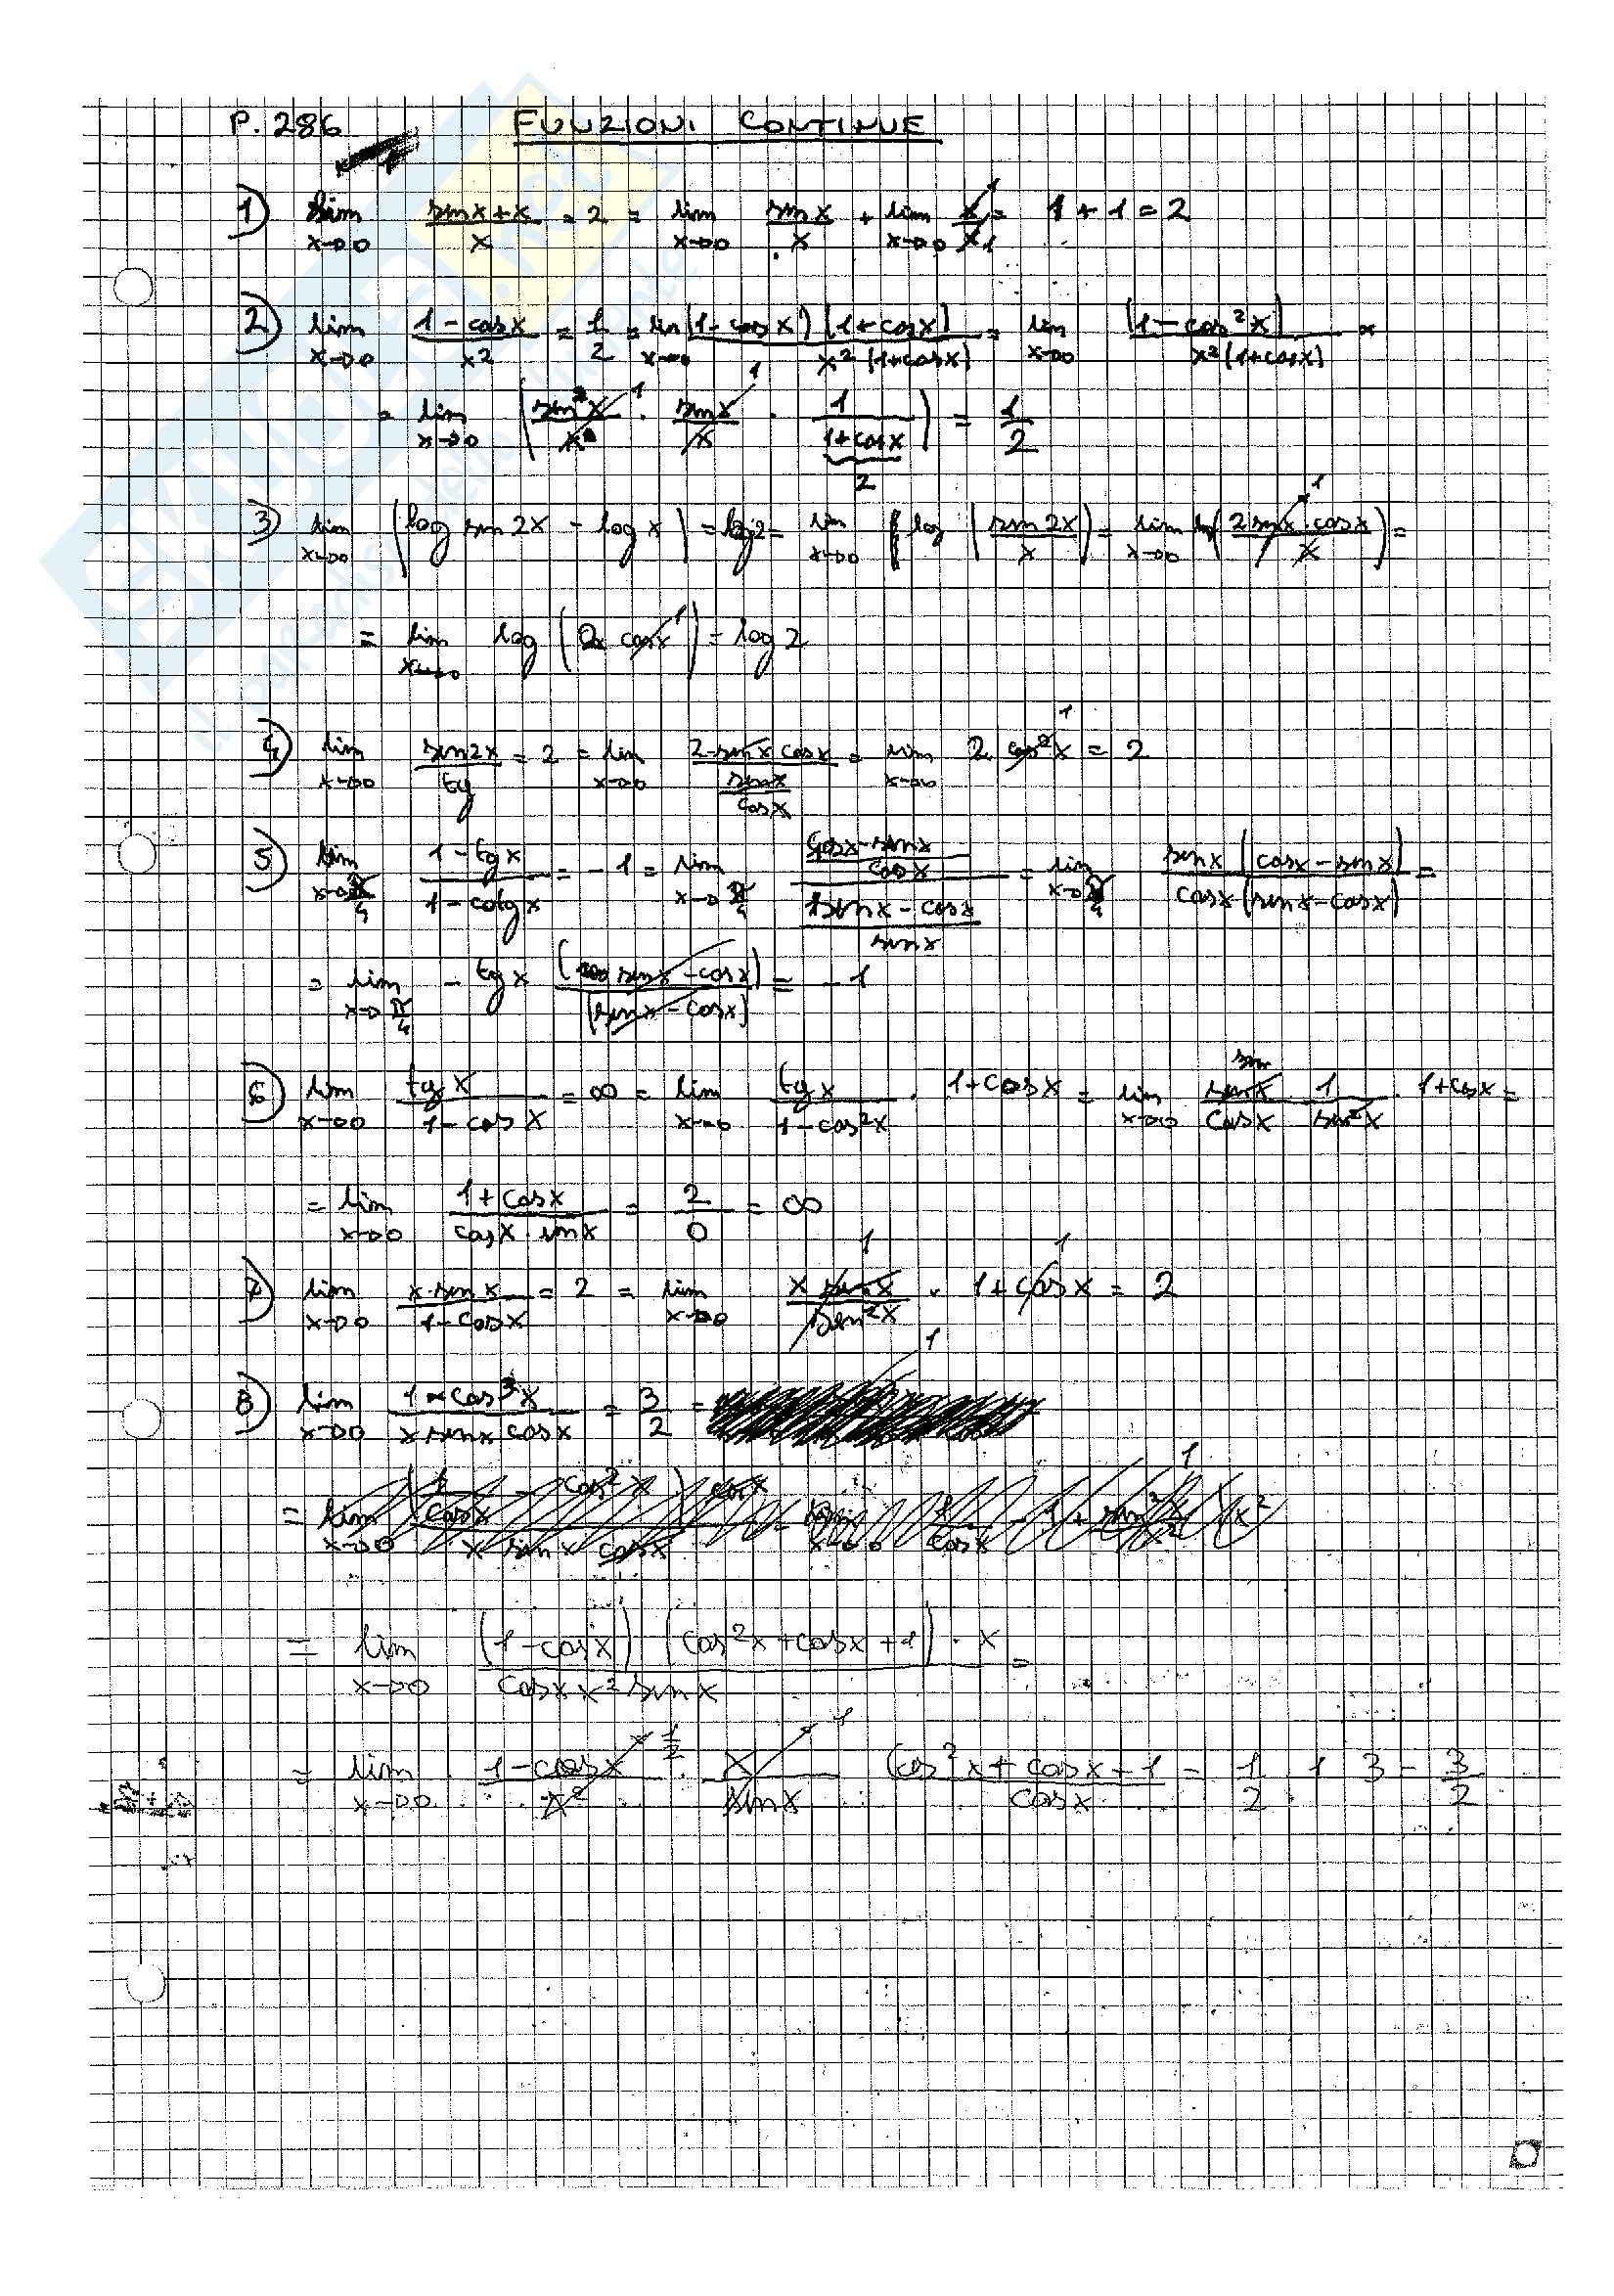 P. 286 FUNZIONI CONTINUE
1) lim x→0 (sin x + x)/x = 2 = lim x→0 sin x/x + lim x→0 x/x = 1 + 1 = 2
2) lim x→0 (1 - cos x)/x² = 1/2 = lim x→0 (1 - cos x)(1 + cos x)/(x²(1 + cos x)) = lim x→0 (1 - cos² x)/(x²(1 + cos x)) =
= lim x→0 (sin x/x · sin x/x · 1/(1 + cos x)) = 1/2
2
3) lim x→0 (log sin 2x - log x) = log 2 = lim x→0 log (sin 2x/x) = lim x→0 log (2 sin x · cos x/x) =
= lim x→0 log (2 cos x) = log 2
4) lim x→0 sin 2x/tg = 2 = lim x→0 2 sin x cos x/(sin x/cos x) = lim x→0 2 cos² x = 2
5) lim x→π/4 (1 - tg x)/(1 - cotg x) = -1 = lim x→π/4 ((cos x - sin x)/cos x)/((sin x - cos x)/sin x) = lim x→π/4 sin x (cos x - sin x)/(cos x (sin x - cos x)) =
= lim x→π/4 - tg x (sin x - cos x)/(sin x - cos x) = -1
6) lim x→0 tg x/(1 - cos x) = ∞ = lim x→0 tg x/(1 - cos² x) · 1 + cos x = lim x→0 sin x/cos x · 1/sin² x · 1 + cos x =
= lim x→0 (1 + cos x)/(cos x · sin x) = 2/0 = ∞
7) lim x→0 x · sin x/(1 - cos x) = 2 = lim x→0 x sin x/sen² x · 1 + cos x = 2
8) lim x→0 (1 - cos³ x)/(x sin x cos x) = 3/2 =
= lim x→0 (1 - cos x)(cos² x + cos x + 1) · x/(cos x x² sin x) =
= lim x→0 (1 - cos x)/x² · x/sin x (cos² x + cos x + 1)/cos x = 1/2 1 3 = 3/2